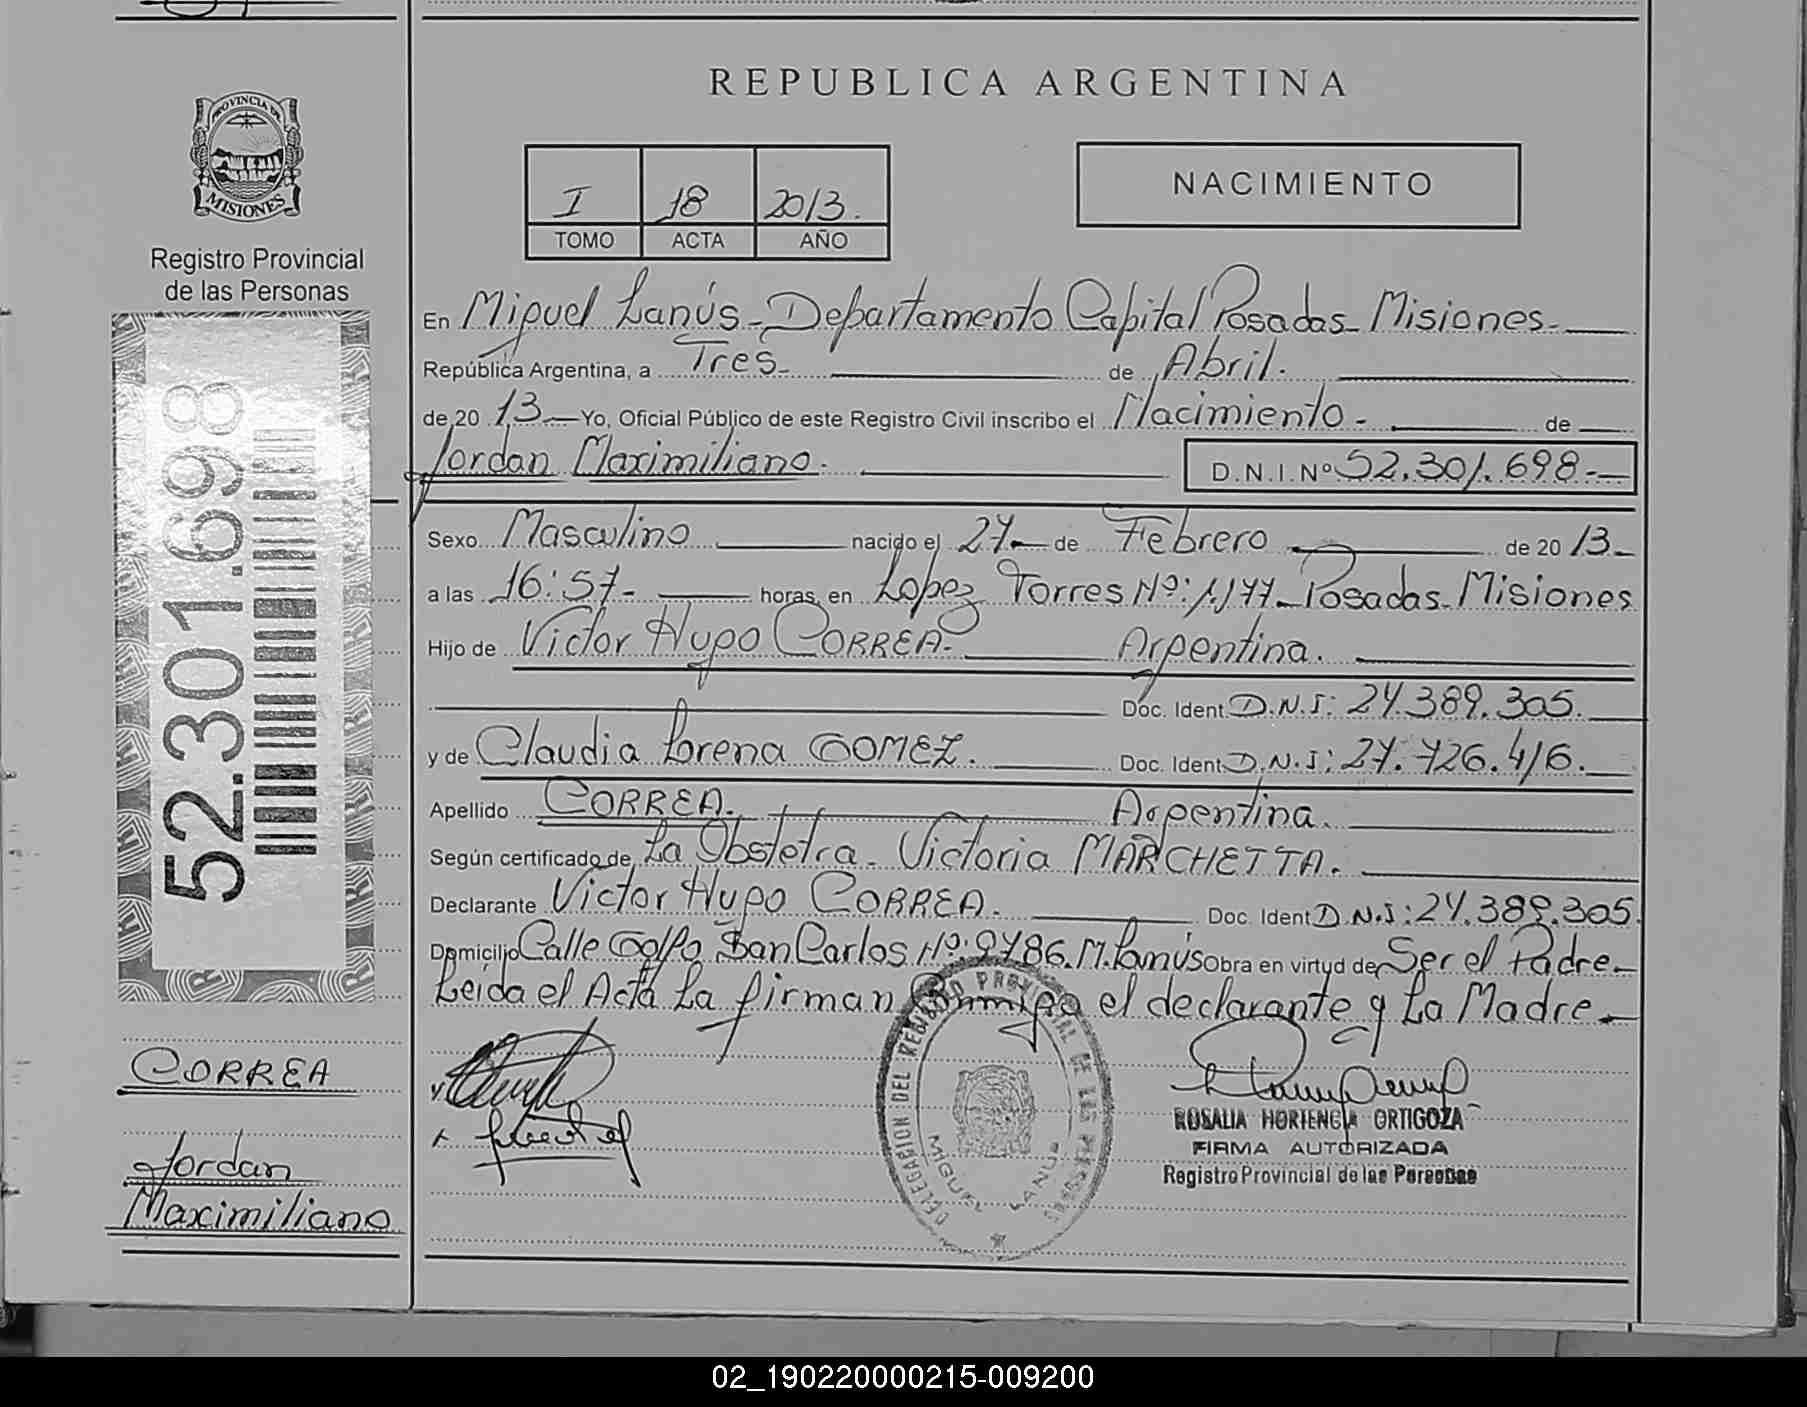 REPUBLICA ARGENTINA
PROVINCIA DE
MISIONES
Registro Provincial
de las Personas
52.301.698
I 18 2013.
TOMO ACTA AÑO
NACIMIENTO
En Miguel Lanús - Departamento Capital Posadas - Misiones -
República Argentina, a Tres - de Abril.
de 20 13 - Yo, Oficial Público de este Registro Civil inscribo el Nacimiento - de
Jordan Maximiliano. D.N.I. Nº 52.301.698 -
Sexo Masculino nacido el 27 - de Febrero de 20 13 -
a las 16:57 - horas, en Lopez Torres Nº: 1.177 - Posadas - Misiones
Hijo de Victor Hugo CORREA - Argentina.
Doc. Ident. D.N.I: 24.389.305.
y de Claudia Lorena GOMEZ. Doc. Ident. D.N.I: 27.726.416.
Apellido CORREA. Argentina.
Según certificado de La Obstetra - Victoria MARCHETTA.
Declarante Victor Hugo CORREA. Doc. Ident D.N.I: 24.389.305.
Domicilio Calle Golfo San Carlos Nº: 9786. M. Lanús Obra en virtud de Ser el Padre -
Leída el Acta La firman Conmigo el declarante y La Madre -
CORREA
Jordan
Maximiliano
DELEGACION DEL REGISTRO PROVINCIAL DE LAS PERSONAS
MIGUEL LANUS
ROSALIA HORTENCIA ORTIGOZA
FIRMA AUTORIZADA
Registro Provincial de las Personas
02_190220000215-009200